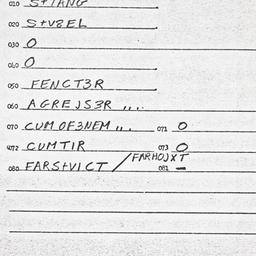 010 S+TANG
020 S+V8EL
030 O
040 O
050 FENCT3R
060 AGREJS3R ,,..
070 CUMOF3NEM ,,. 071 O
072 CUMTIR 073 O
080 FARS+VICT / FARHOJXT 081 –